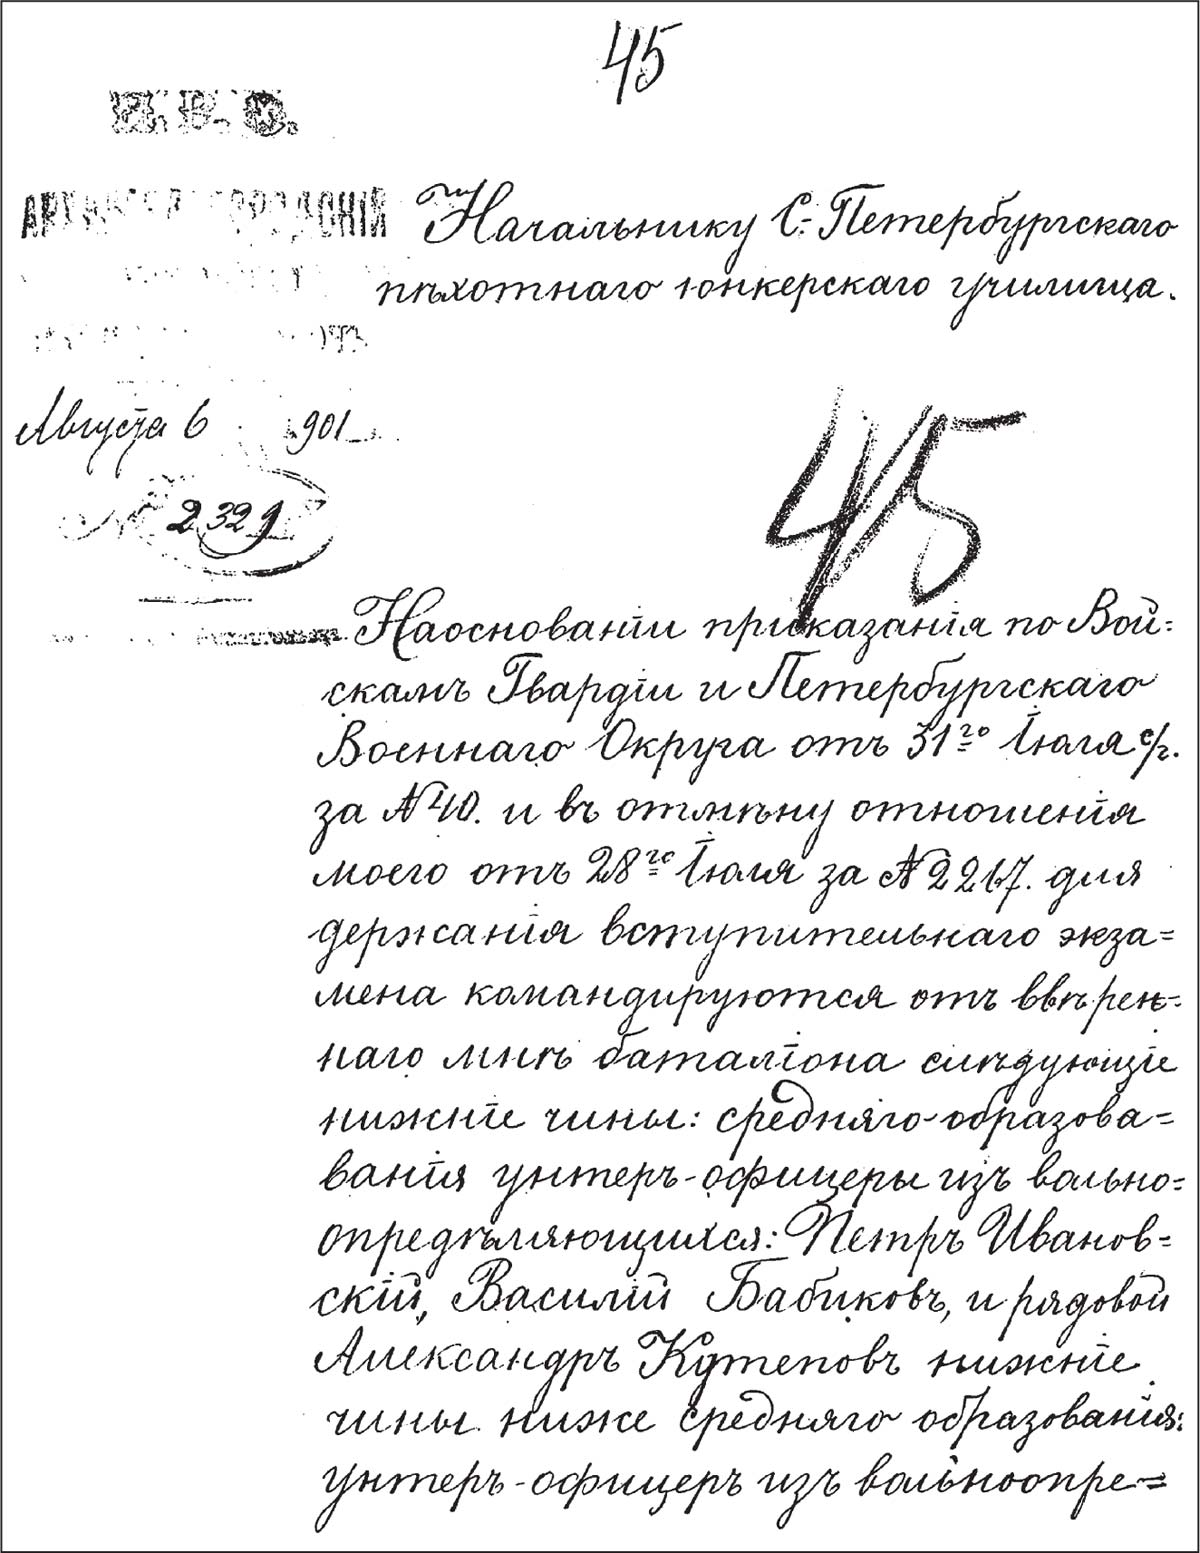 45
М. В. О.
АРХАНГЕЛОГОРОДСКІЙ
Начальнику С.-Петербургскаго
пѣхотнаго юнкерскаго училища.
Августа 6 1901
№ 2329
45
Наоснованіи приказанія по Вой=
скамъ Гвардіи и Петербургскаго
Военнаго Округа отъ 31го Іюля с/г.
за № 40. и въ отмѣну отношенія
моего отъ 28го Іюля за № 2267. для
держанія вступительнаго экза=
мена командируются отъ ввѣрен=
наго мнѣ баталіона слѣдующіе
нижніе чины: средняго образова=
ванія унтеръ-офицеры изъ вольно=
опредѣляющихся: Петръ Иванов=
скій, Василій Бабиковъ, и рядовой
Александръ Кутеповъ нижніе
чины ниже средняго образованія:
унтеръ-офицеръ изъ вольноопре=